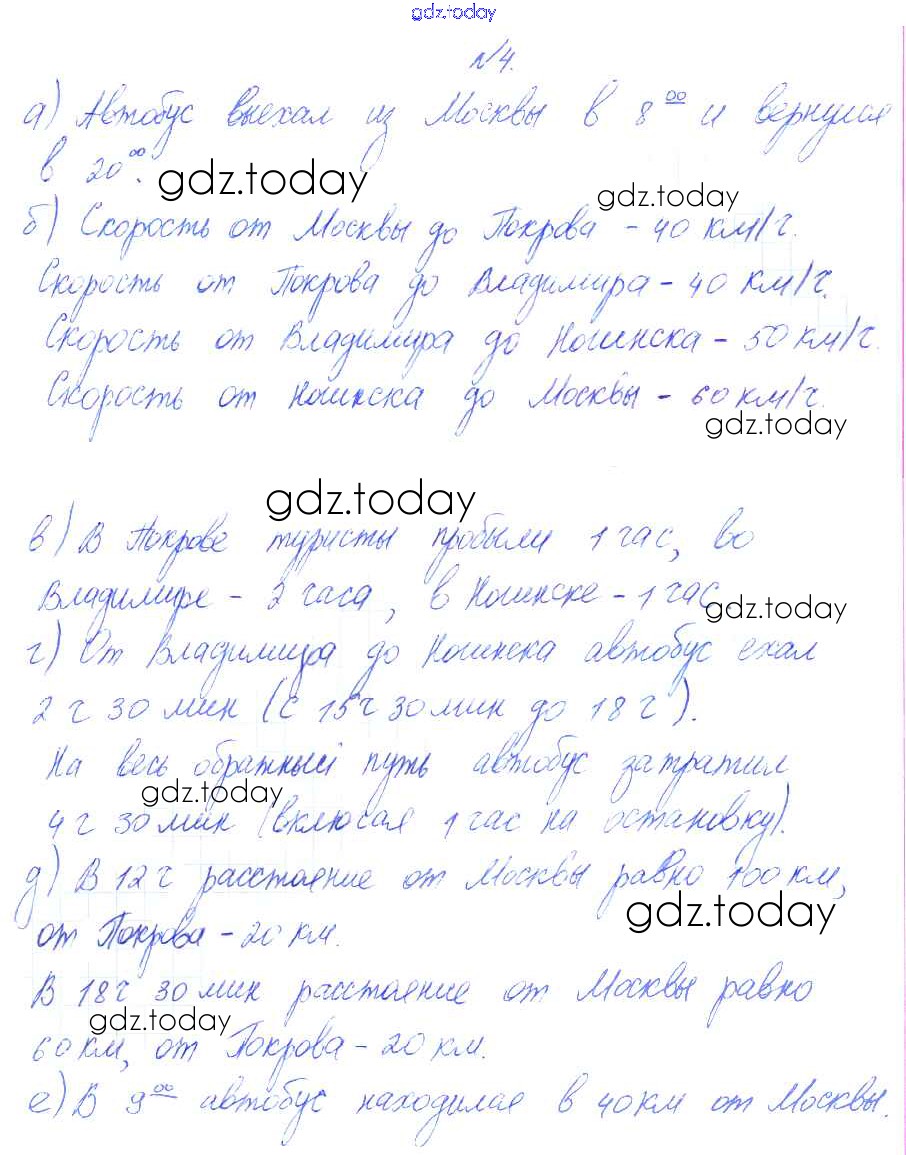 gdz.today
№4.
а) Автобус выехал из Москвы в 8⁰⁰ и вернулся
в 20⁰⁰.
gdz.today
gdz.today
б) Скорость от Москвы до Покрова - 40 км/ч.
Скорость от Покрова до Владимира - 40 км/ч.
Скорость от Владимира до Ногинска - 50 км/ч.
Скорость от Ногинска до Москвы - 60 км/ч.
gdz.today
gdz.today
в) В Покрове туристы пробыли 1 час, во
Владимире - 2 часа, в Ногинске - 1 час.
gdz.today
г) От Владимира до Ногинска автобус ехал
2 ч 30 мин (с 15ч 30 мин до 18 ч).
На весь обратный путь автобус затратил
gdz.today
4 ч 30 мин (включая 1 час на остановку).
д) В 12 ч расстояние от Москвы равно 100 км,
gdz.today
от Покрова - 20 км.
В 18 ч 30 мин расстояние от Москвы равно
gdz.today
60 км, от Покрова - 20 км.
е) В 9⁰⁰ автобус находился в 40 км от Москвы.